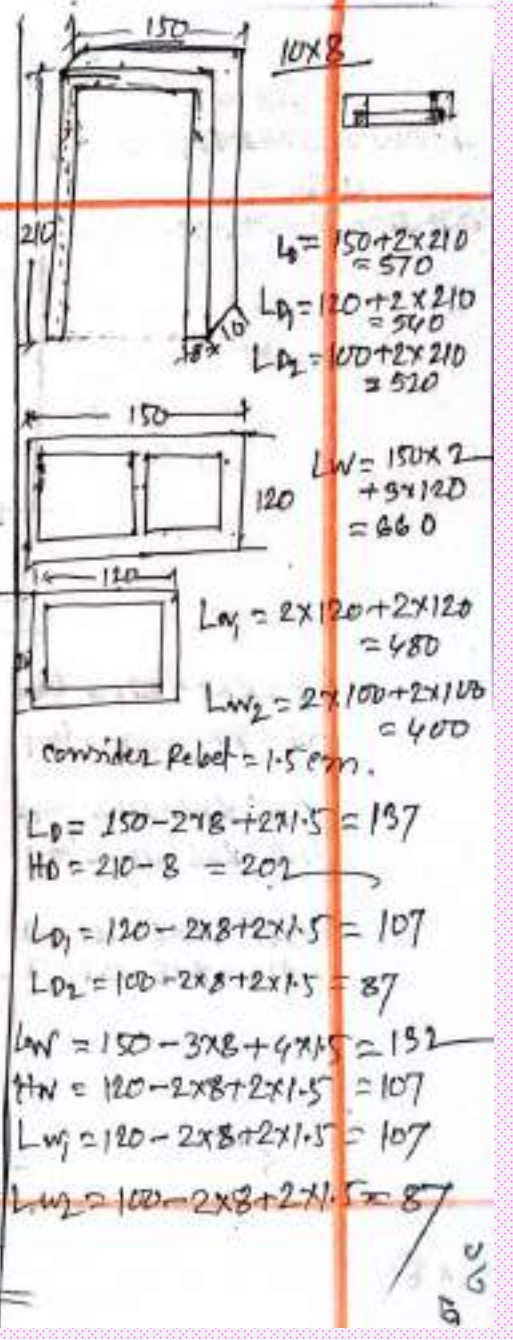 150
10x8
210
L0 = 150+2x210
= 570
LD1 = 120+2x210
= 540
LD2 = 100+2x210
= 520
8x10
150
120
LW = 150x2
+3x120
= 660
120
LW1 = 2x120+2x120
= 480
LW2 = 2x100+2x100
= 400
consider Rebet = 1.5 cm.
LD = 150-2x8+2x1.5 = 137
HD = 210-8 = 202
LD1 = 120-2x8+2x1.5 = 107
LD2 = 100-2x8+2x1.5 = 87
LW = 150-3x8+4x1.5 = 132
HW = 120-2x8+2x1.5 = 107
LW1 = 120-2x8+2x1.5 = 107
LW2 = 100-2x8+2x1.5 = 87